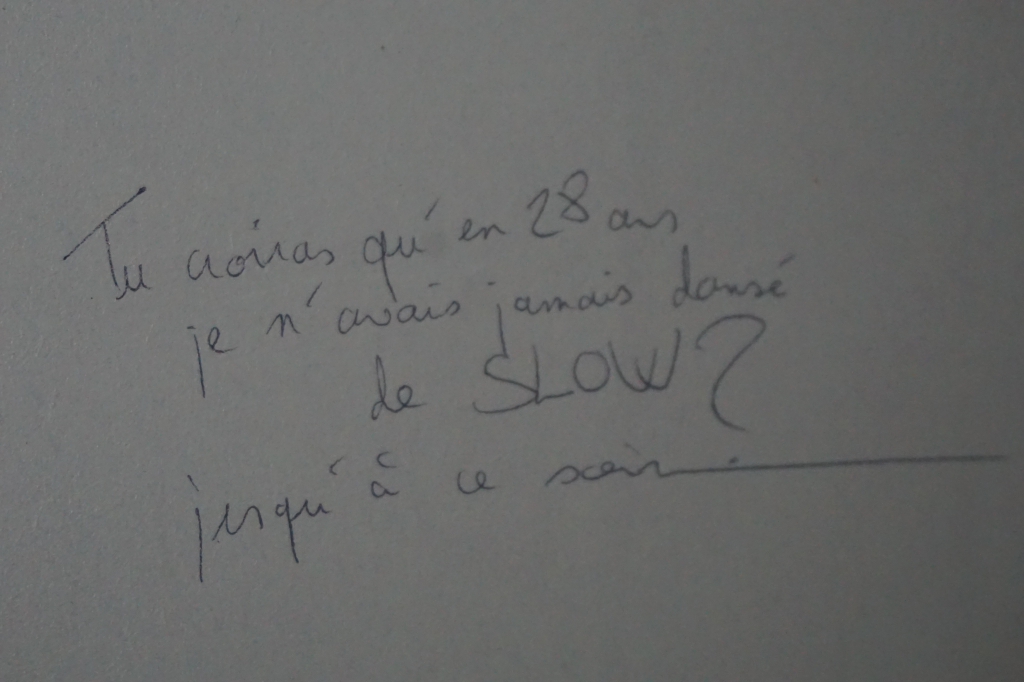 Tu croiras qu'en 28 ans
je n'avais jamais dansé
de SLOW?
jusqu'à ce soir